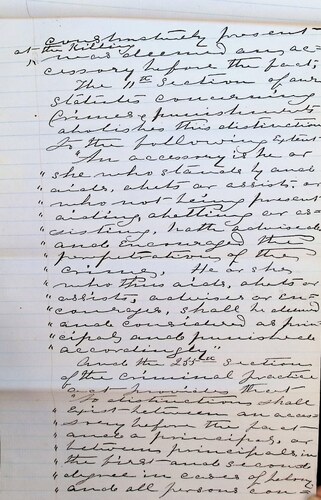 constructively present
at the killing
was deemed an ac-
cessory before the fact,
The 11th Section of our
Statutes concerning
Crimes & punishments
abolishes this distinction
To the following Extent
"An accessory is he or
"she who stands by and
"aids, abets or assists, or
"who not being present
"aiding abetting or as-
"sisting, hath advised
"and Encouraged the
"perpetration of the
"crime, He or she
"who thus aids, abets or
"assists, advises or En-
"courages, shall be deemed
"and considered as prin-
"cipal, and punished
"accordingly"
And the 255th Section
of the criminal practice
act provides that
"No distinctions shall
"Exist between an access
"sory before the fact
"and a principal, or
"between principals in
"the first and second
"degree in cases of felony
"and all persons con